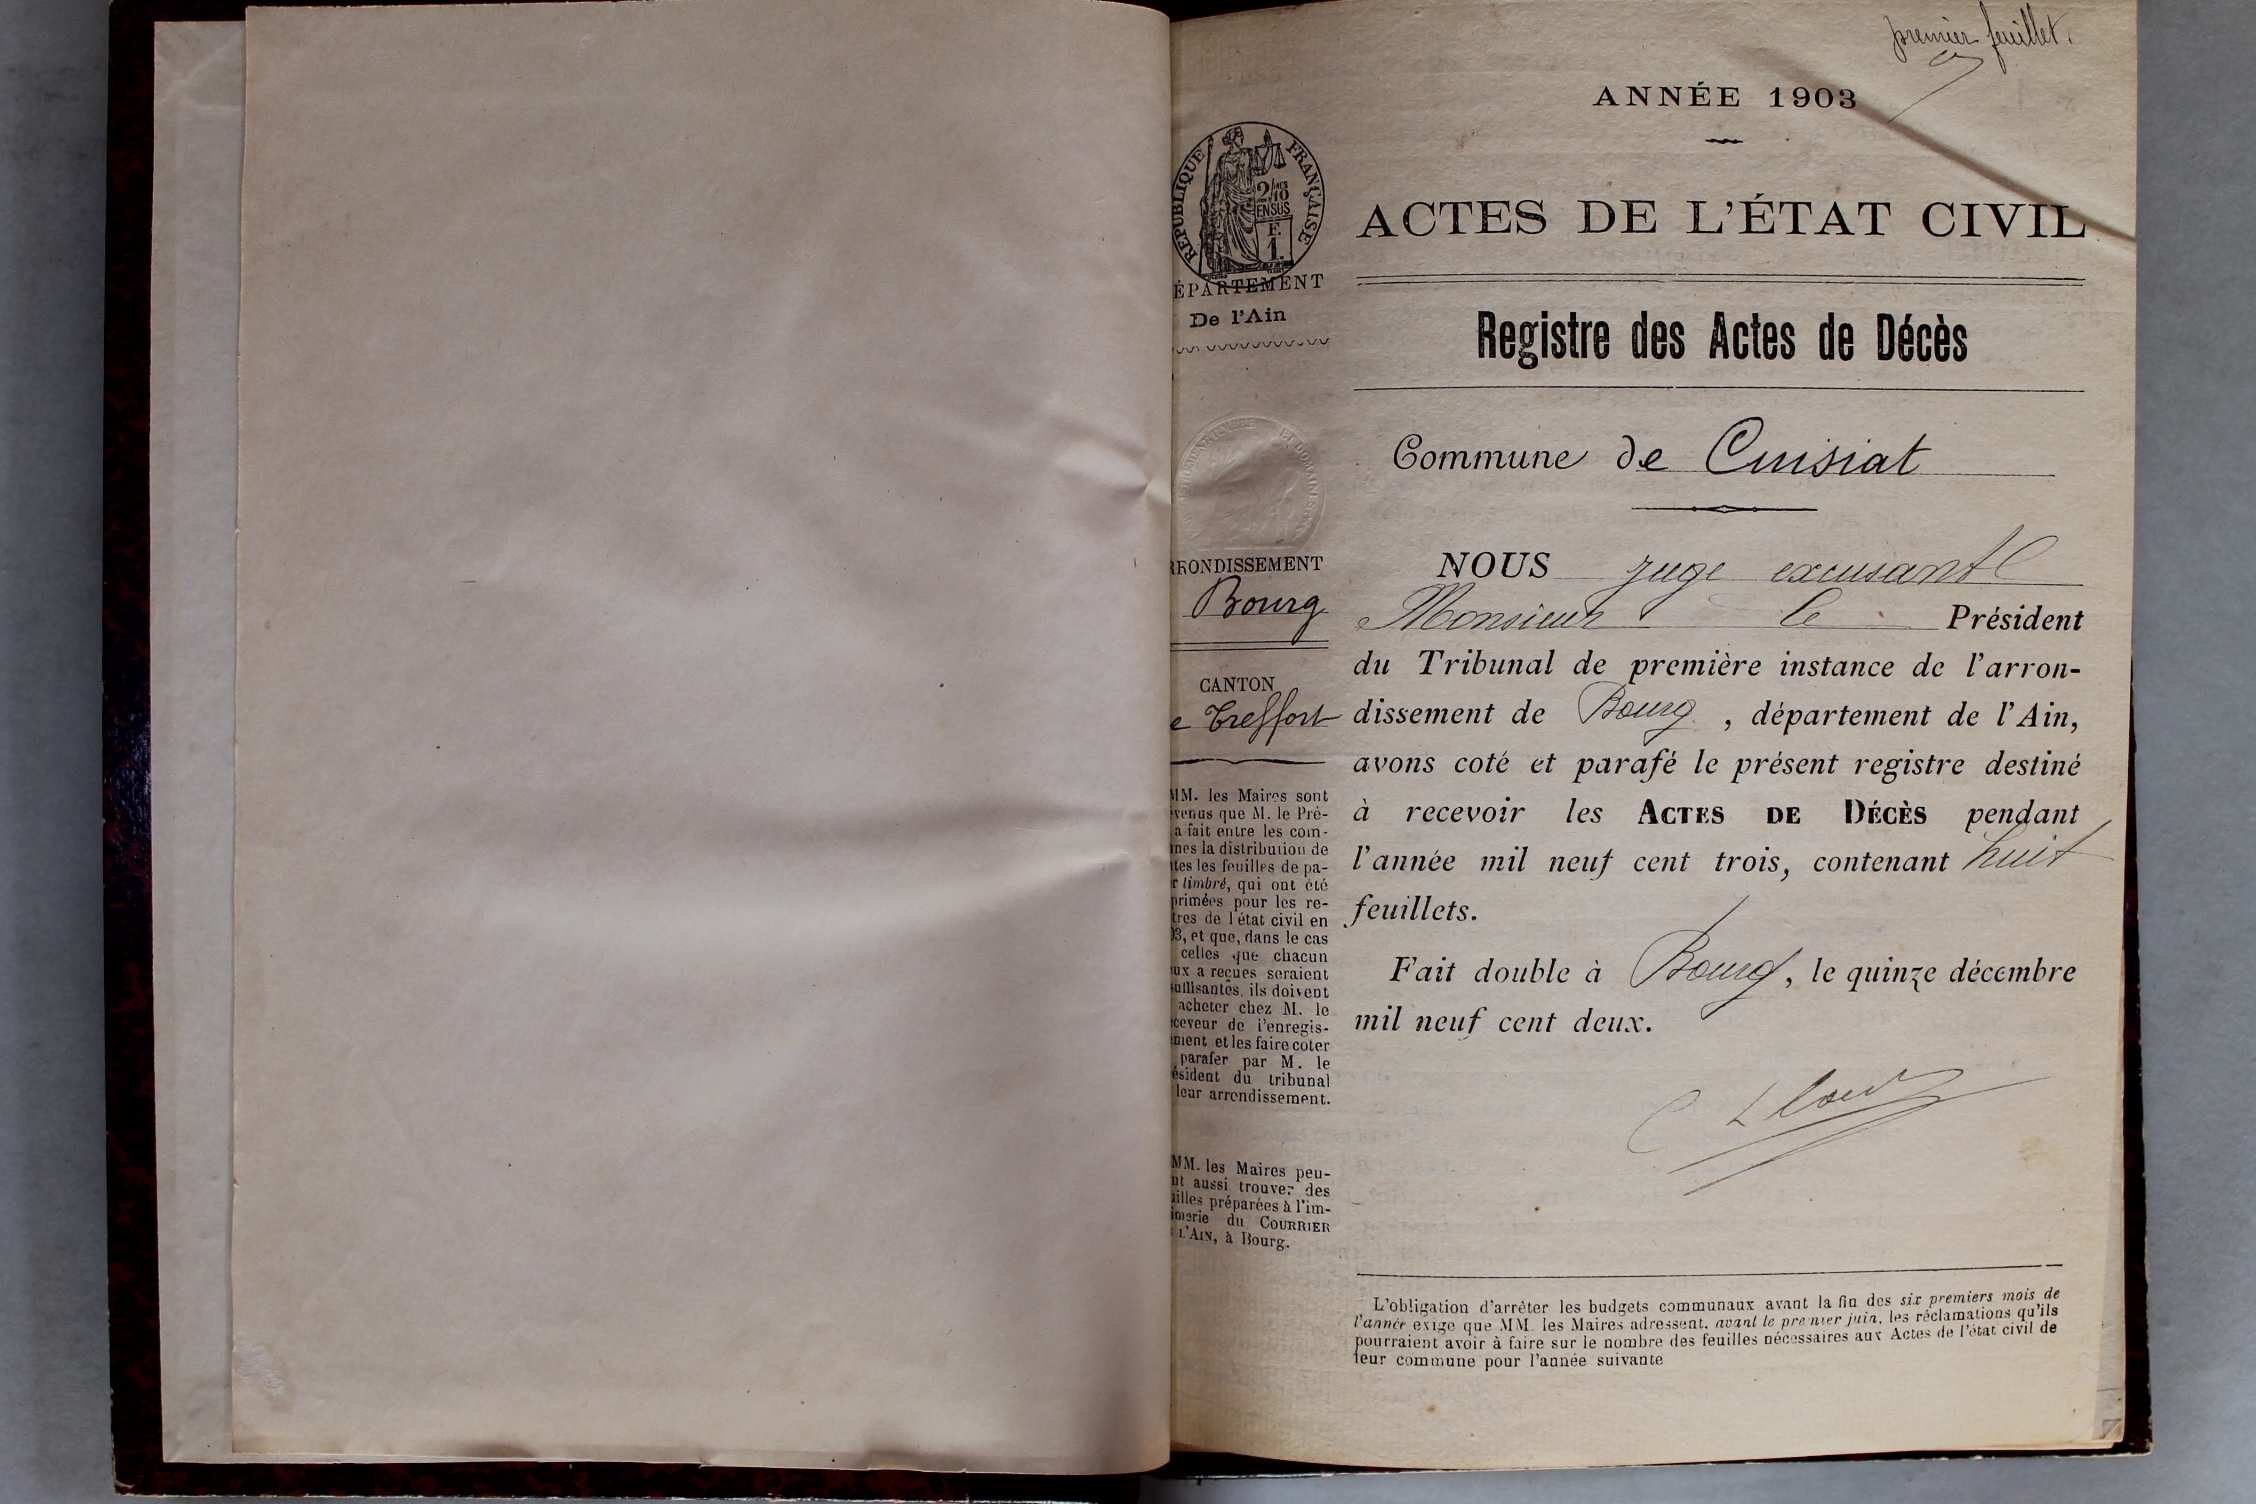 premier feuillet.
ANNÉE 1903
ACTES DE L'ÉTAT CIVIL
Registre des Actes de Décès
Commune de Cuisiat
NOUS juge excusant
Monsieur le Président
du Tribunal de première instance de l'arron-
dissement de Bourg, département de l'Ain,
avons coté et parafé le présent registre destiné
à recevoir les ACTES DE DÉCÈS pendant
l'année mil neuf cent trois, contenant huit
feuillets.
Fait double à Bourg, le quinze décembre
mil neuf cent deux.
L'obligation d'arrêter les budgets communaux avant la fin des six premiers mois de
l'année exige que MM. les Maires adressent, avant le premier juin, les réclamations qu'ils
pourraient avoir à faire sur le nombre des feuilles nécessaires aux Actes de l'état civil de
leur commune pour l'année suivante
RÉPUBLIQUE FRANÇAISE
2/10
EN SUS
F.
1.
ÉPARTEMENT
De l'Ain
RRONDISSEMENT
Bourg
CANTON
e Treffort
MM. les Maires sont
venus que M. le Pré-
a fait entre les com-
nes la distribution de
tes les feuilles de pa-
r timbré, qui ont été
primées pour les re-
tres de l'état civil en
03, et que, dans le cas
celles que chacun
ux a reçues seraient
uffisantes, ils doivent
acheter chez M. le
ceveur de l'enregis-
ment et les faire coter
parafer par M. le
ésident du tribunal
leur arrondissement.
MM. les Maires peu-
nt aussi trouver des
illes préparées à l'im-
imerie du COURRIER
L'AIN, à Bourg.